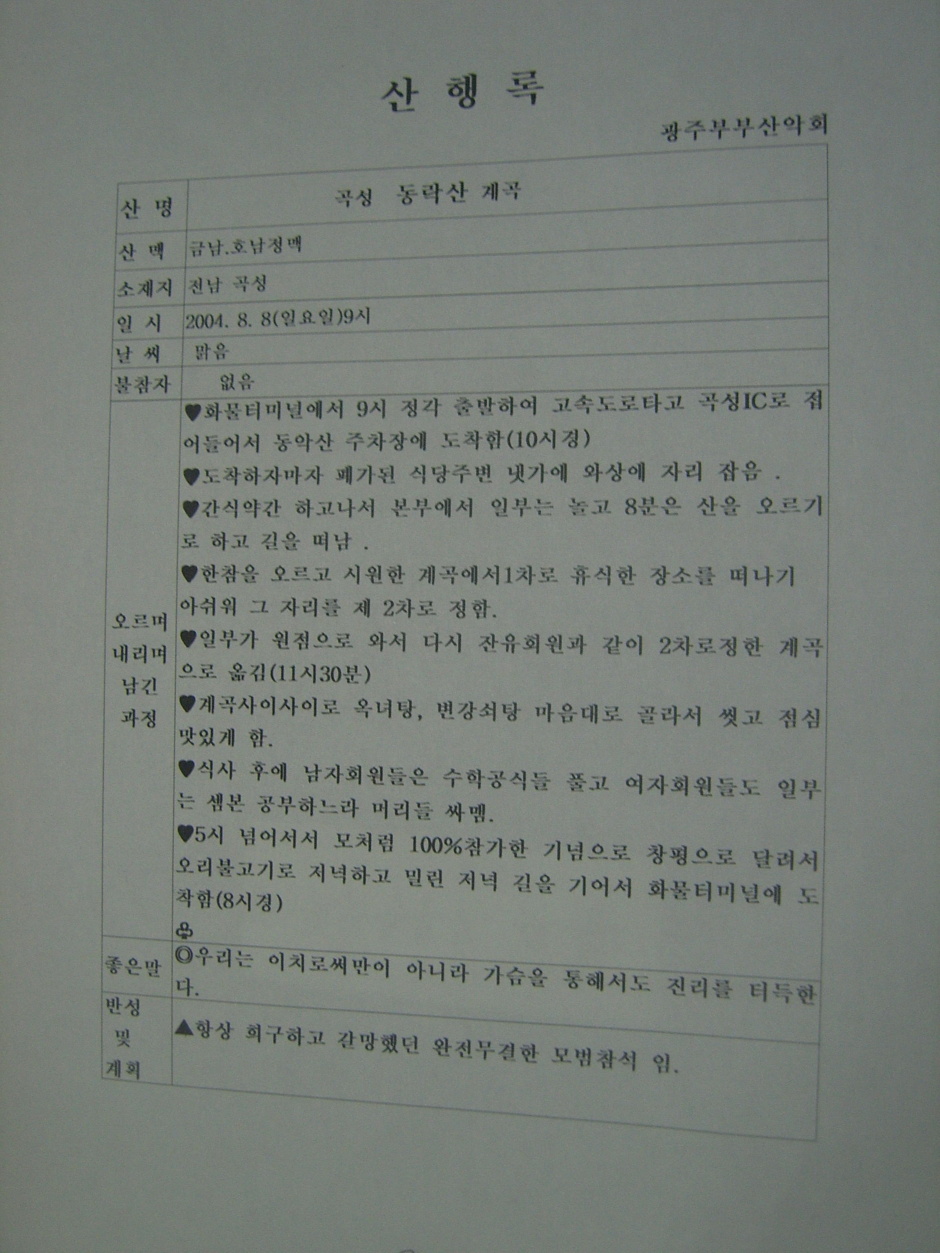 산 행 록
광주부부산악회
산 명 곡성 동락산 계곡
산 맥 금남.호남정맥
소재지 전남 곡성
일 시 2004. 8. 8(일요일)9시
날 씨 맑음
불참자 없음
♥화물터미널에서 9시 정각 출발하여 고속도로타고 곡성IC로 접
어들어서 동악산 주차장에 도착함(10시경)
♥도착하자마자 폐가된 식당주변 냇가에 와상에 자리 잡음 .
♥간식약간 하고나서 본부에서 일부는 놀고 8분은 산을 오르기
로 하고 길을 떠남 .
♥한참을 오르고 시원한 계곡에서1차로 휴식한 장소를 떠나기
아쉬워 그 자리를 제 2차로 정함.
♥일부가 원점으로 와서 다시 잔유회원과 같이 2차로정한 계곡
으로 옮김(11시30분)
♥계곡사이사이로 옥녀탕, 변강쇠탕 마음대로 골라서 씻고 점심
맛있게 함.
♥식사 후에 남자회원들은 수학공식들 풀고 여자회원들도 일부
는 셈본 공부하느라 머리들 싸맴.
♥5시 넘어서서 모처럼 100%참가한 기념으로 창평으로 달려서
오리불고기로 저녁하고 밀린 저녁 길을 기어서 화물터미널에 도
착함(8시경)
♧
오르며
내리며
남긴
과정
좋은말 ◎우리는 이치로써만이 아니라 가슴을 통해서도 진리를 터득한
다.
반성
및
계획
▲항상 희구하고 갈망했던 완전무결한 모범참석 임.